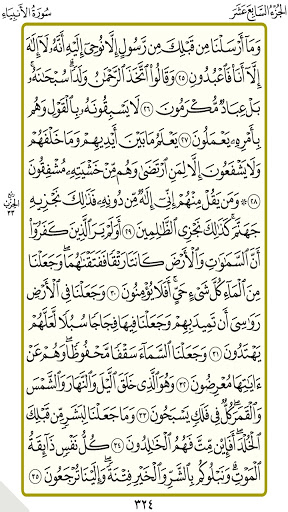 الجُزْءُ السَّابِعَ عَشَرَ سُورَةُ الأَنبِيَاءِ
وَمَآ أَرْسَلْنَا مِن قَبْلِكَ مِن رَّسُولٍ إِلَّا نُوحِىٓ إِلَيْهِ أَنَّهُۥ لَآ إِلَٰهَ
إِلَّآ أَنَا۠ فَٱعْبُدُونِ ٢٥ وَقَالُوا۟ ٱتَّخَذَ ٱلرَّحْمَٰنُ وَلَدًا ۗ سُبْحَٰنَهُۥ ۚ
بَلْ عِبَادٌ مُّكْرَمُونَ ٢٦ لَا يَسْبِقُونَهُۥ بِٱلْقَوْلِ وَهُم
بِأَمْرِهِۦ يَعْمَلُونَ ٢٧ يَعْلَمُ مَا بَيْنَ أَيْدِيهِمْ وَمَا خَلْفَهُمْ
وَلَا يَشْفَعُونَ إِلَّا لِمَنِ ٱرْتَضَىٰ وَهُم مِّنْ خَشْيَتِهِۦ مُشْفِقُونَ
٢٨ ۞ وَمَن يَقُلْ مِنْهُمْ إِنِّىٓ إِلَٰهٌ مِّن دُونِهِۦ فَذَٰلِكَ نَجْزِيهِ
رُبْعُ الحِزْبِ ٣٣
جَهَنَّمَ ۚ كَذَٰلِكَ نَجْزِى ٱلظَّٰلِمِينَ ٢٩ أَوَلَمْ يَرَ ٱلَّذِينَ كَفَرُوٓا۟
أَنَّ ٱلسَّمَٰوَٰتِ وَٱلْأَرْضَ كَانَتَا رَتْقًا فَفَتَقْنَٰهُمَا ۖ وَجَعَلْنَا
مِنَ ٱلْمَآءِ كُلَّ شَىْءٍ حَىٍّ ۖ أَفَلَا يُؤْمِنُونَ ٣٠ وَجَعَلْنَا فِى ٱلْأَرْضِ
رَوَٰسِىَ أَن تَمِيدَ بِهِمْ وَجَعَلْنَا فِيهَا فِجَاجًا سُبُلًا لَّعَلَّهُمْ
يَهْتَدُونَ ٣١ وَجَعَلْنَا ٱلسَّمَآءَ سَقْفًا مَّحْفُوظًا ۖ وَهُمْ عَنْ
ءَايَٰتِهَا مُعْرِضُونَ ٣٢ وَهُوَ ٱلَّذِى خَلَقَ ٱلَّيْلَ وَٱلنَّهَارَ وَٱلشَّمْسَ
وَٱلْقَمَرَ ۖ كُلٌّ فِى فَلَكٍ يَسْبَحُونَ ٣٣ وَمَا جَعَلْنَا لِبَشَرٍ مِّن قَبْلِكَ
ٱلْخُلْدَ ۖ أَفَإِي۟ن مِّتَّ فَهُمُ ٱلْخَٰلِدُونَ ٣٤ كُلُّ نَفْسٍ ذَآئِقَةُ
ٱلْمَوْتِ ۗ وَنَبْلُوكُم بِٱلشَّرِّ وَٱلْخَيْرِ فِتْنَةً ۖ وَإِلَيْنَا تُرْجَعُونَ ٣٥
٣٢٤